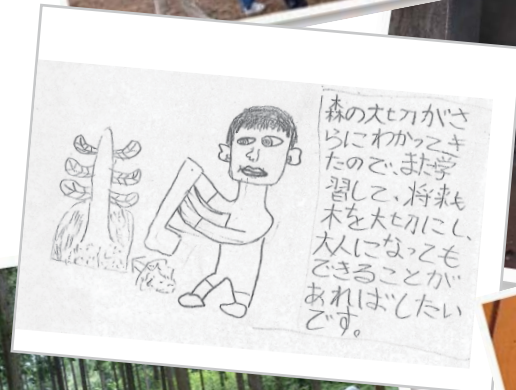 森の大切がさ
らにわかってき
たので、また学
習して、将来も
木を大切にし、
大人になっても
できることが
あればしたい
です。